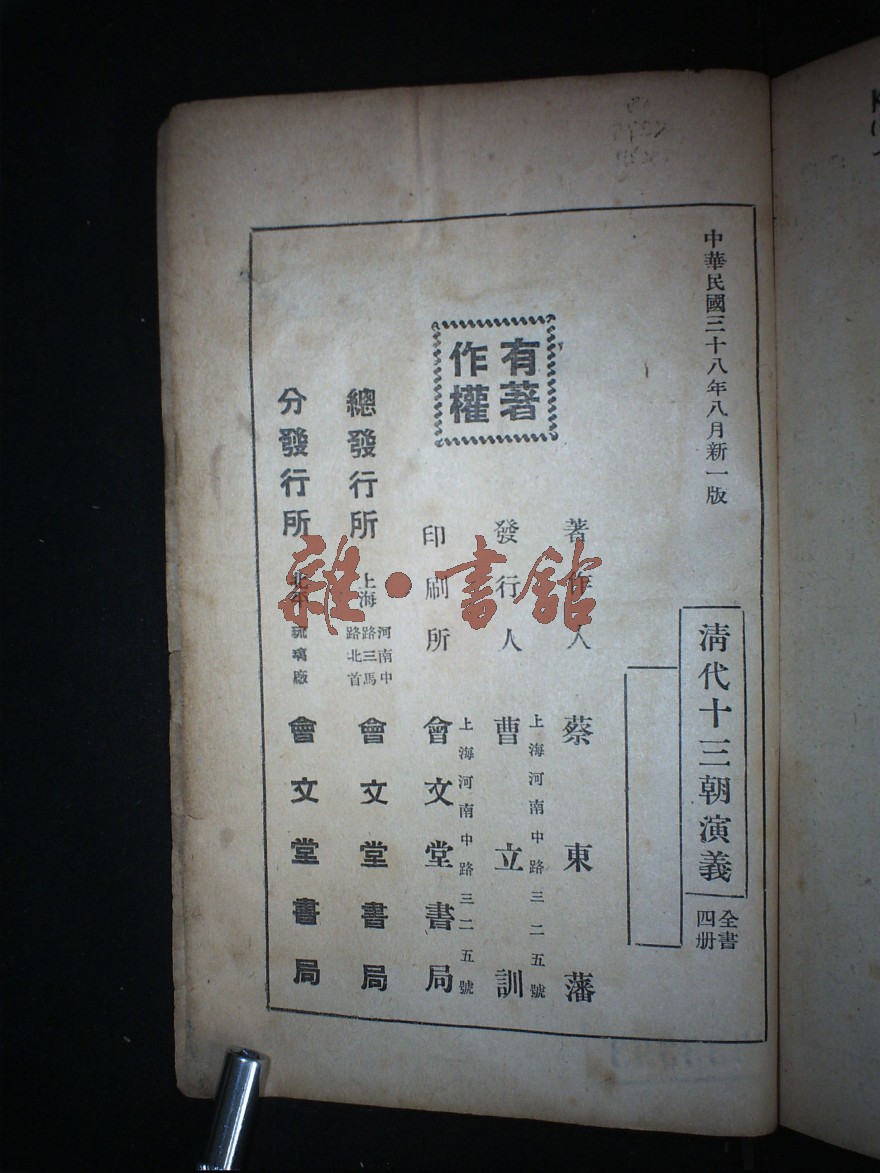 中華民國三十八年八月新一版
清代十三朝演義
全書
四册
有著
作權
著作人 蔡東藩
發行人 曹立訓
上海河南中路三二五號
印刷所 會文堂書局
上海河南中路三二五號
總發行所 上海 河南中
路三馬
路北首 會文堂書局
分發行所 北平 琉璃廠 會文堂書局
雜·書館